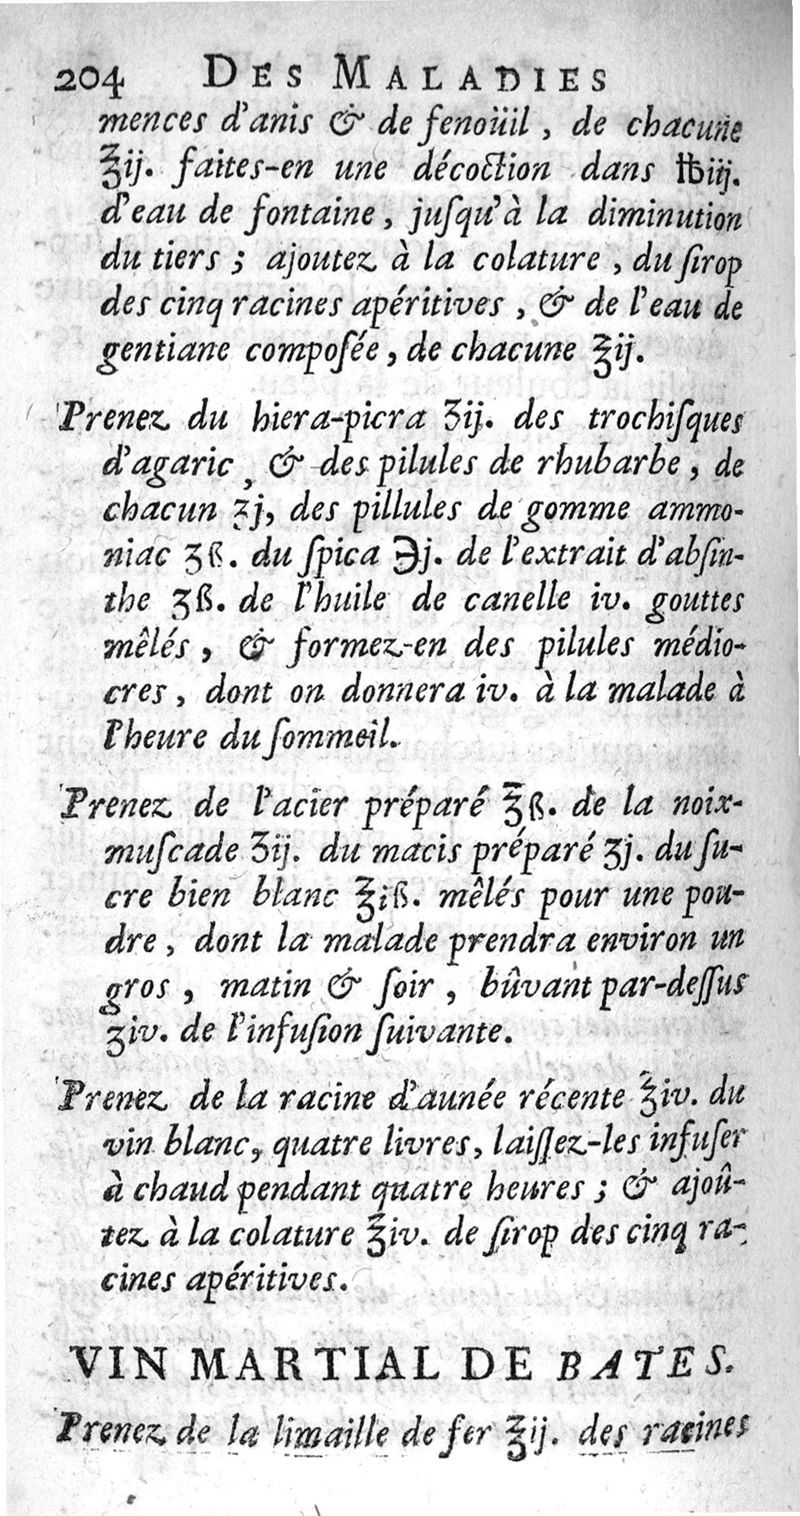 204 DES MALADIES
mences d'anis & de fenoüil, de chacune
℥ij. faites-en une décoction dans ℔iij.
d'eau de fontaine, juſqu'à la diminution
du tiers ; ajoutez à la colature, du ſirop
des cinq racines apéritives, & de l'eau de
gentiane compoſée, de chacune ℥ij.
Prenez du hiera-picra ʒij. des trochiſques
d'agaric, & des pilules de rhubarbe, de
chacun ʒj, des pillules de gomme ammo-
niac ʒß. du ſpica ℈j. de l'extrait d'abſin-
the ʒß. de l'huile de canelle iv. gouttes
mêlés, & formez-en des pilules médio-
cres, dont on donnera iv. à la malade à
l'heure du ſommeil.
Prenez de l'acier préparé ℥ß. de la noix-
muſcade ʒij. du macis préparé ʒj. du ſu-
cre bien blanc ℥iß. mêlés pour une pou-
dre, dont la malade prendra environ un
gros, matin & ſoir, bûvant par-deſſus
℥iv. de l'infuſion ſuivante.
Prenez de la racine d'aunée récente ℥iv. du
vin blanc, quatre livres, laiſſez-les infuſer
à chaud pendant quatre heures ; & ajoû-
tez à la colature ℥iv. de ſirop des cinq ra-
cines apéritives.
VIN MARTIAL DE BATES.
Prenez de la limaille de fer ℥ij. des racines